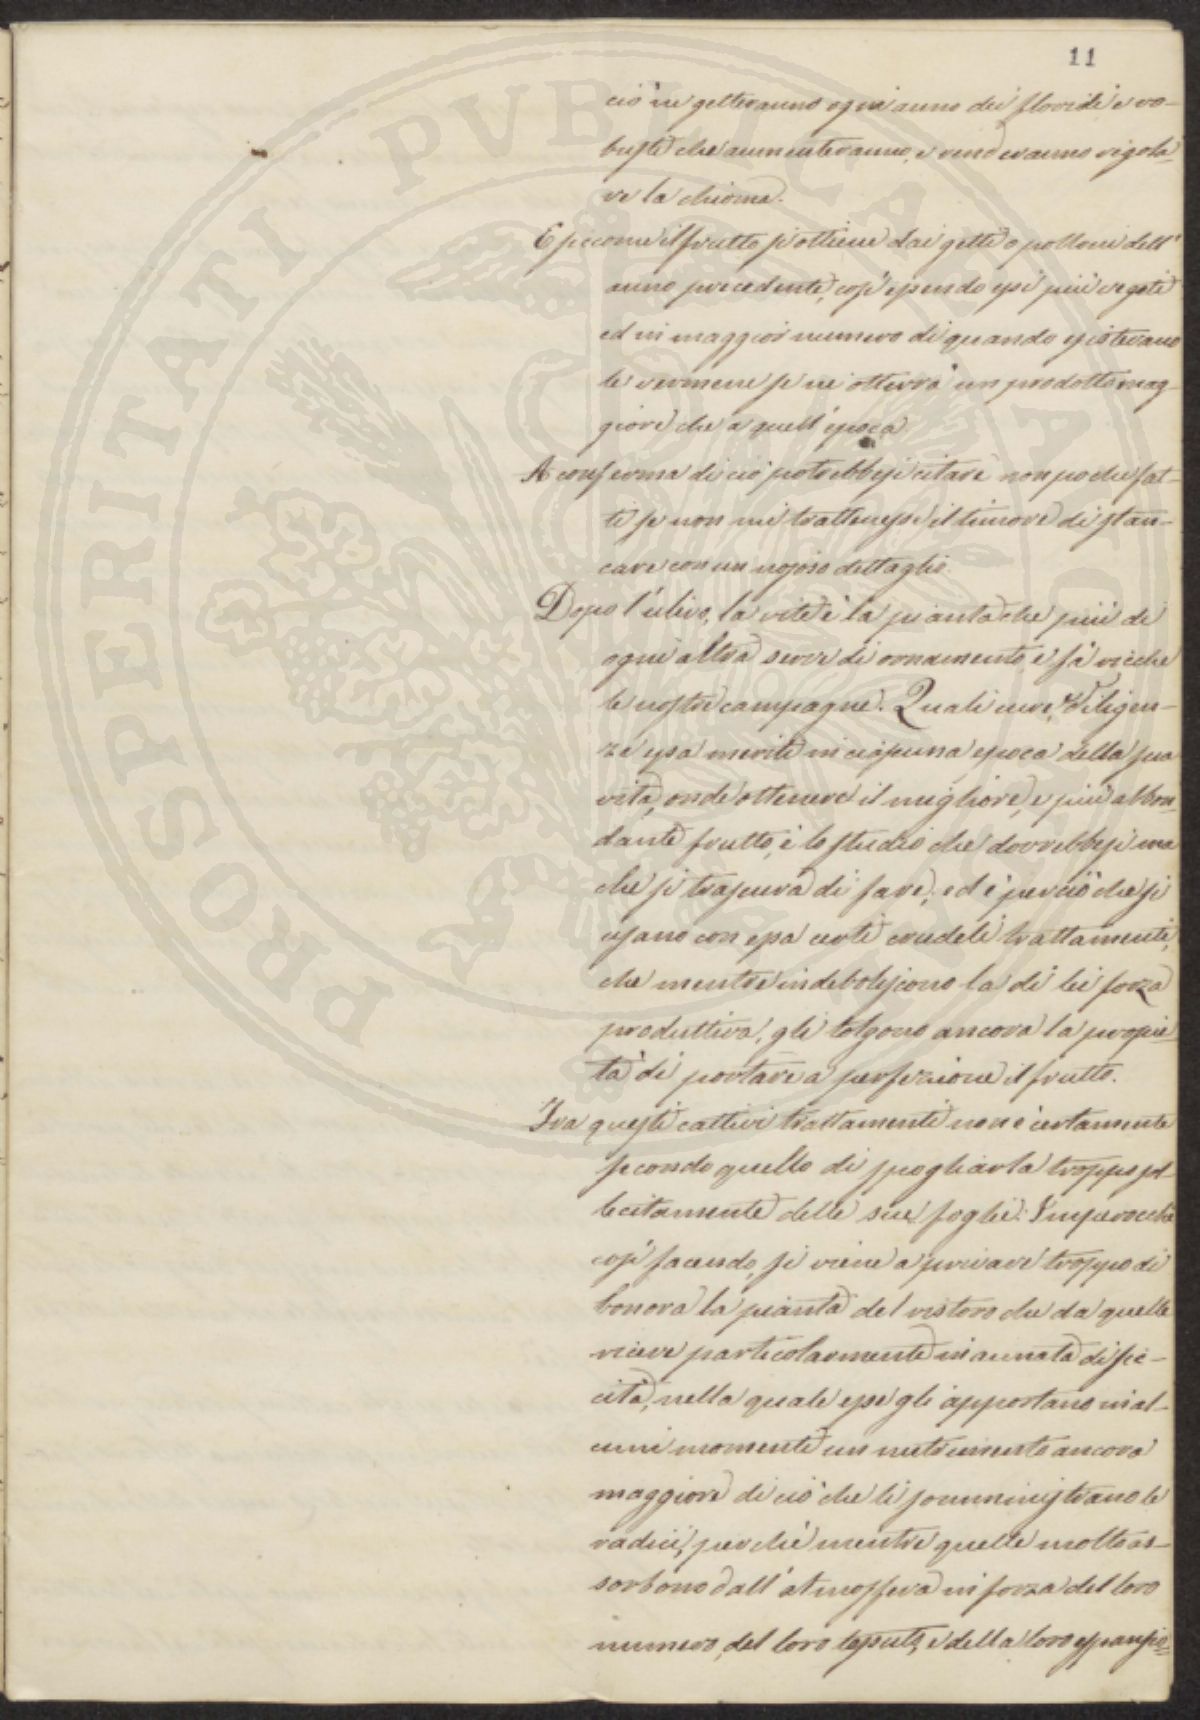 11
PROSPERITATI PVBLICAE
ciò ne getteranno ogni anno dei floridi e ro-
busti che aumenteranno, e renderanno rigola-
re la chioma.
E siccome il frutto si ottiene dai getti o polloni dell'
anno precedente, così essendo essi più vegeti
ed in maggior numero di quando esistevano
le vermene se ne otterrà un prodotto mag-
giore che a quell'epoca
A conferma di ciò potrebbesi citare non poche fat-
ti se non mi trattenesse il timore di stan-
care con un nojoso dettaglio.
Dopo l'ulivo, la vite è la pianta che più di
ogni altra serve di ornamento, e fà ricche
le nostre campagne. Quali cure, e diligen-
ze essa meriti in ciascuna epoca della sua
vita, onde ottenere il migliore, e più abbon-
dante frutto, è lo studio che dovrebbesi ma
che si trascura di fare; ed è perciò che si
usano con essa certi crudeli trattamenti,
che mentre indeboliscono la di lei forza
produttiva, gli tolgono ancora la proprie-
tà di portare a perfezione il frutto.
Fra questi cattivi trattamenti non è certamente
secondo quello di spogliarla troppo sol-
lecitamente delle sue foglie. Imperocchè
così facendo, si viene a privare troppo di
bonora la pianta del ristoro che da quelle
riceve particolarmente in annata di sic-
cità, nella quale esse gli apportano in al-
cuni momenti un nutrimento ancora
maggiore di ciò che li somministrano le
radici, perchè mentre quelle molto as-
sorbono dall'atmosfera in forza del loro
numero, del loro tessuto, e della loro espansio-